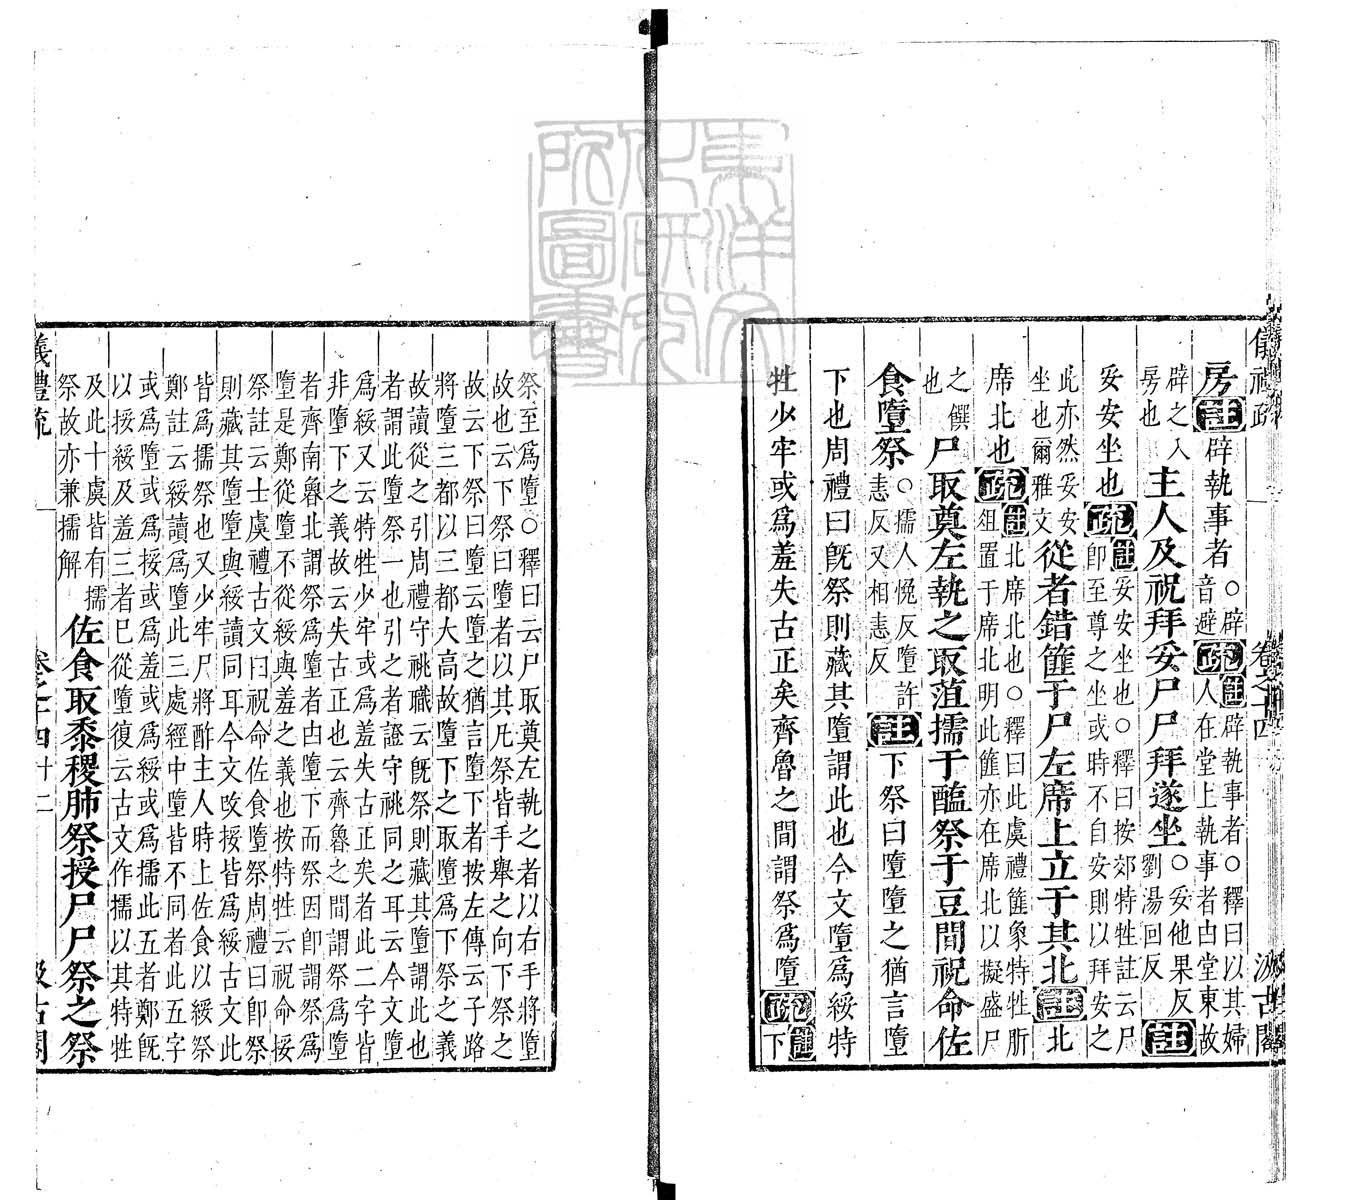 儀禮疏 卷之十四 汲古閣
房註辟執事者○辟音避疏註辟執事者○釋曰以其婦人在堂上執事者由堂東故
辟之入房也主人及祝拜妥尸尸拜遂坐○妥他果反劉湯回反註
妥安坐也疏註妥安坐也○釋曰按郊特牲註云尸卽至尊之坐或時不自安則以拜安之
此亦然妥安坐也爾雅文從者錯篚于尸左席上立于其北註北
席北也疏註北席北也○釋曰此虞禮篚象特牲肵俎置于席北明此篚亦在席北以擬盛尸
之饌也尸取奠左執之取菹擩于醢祭于豆間祝命佐
食墮祭○擩人悅反墮許恚反又相恚反註下祭曰墮墮之猶言墮
下也周禮曰旣祭則藏其墮謂此也今文墮爲綏特
牲少牢或爲羞失古正矣齊魯之間謂祭爲墮疏註下
祭至爲墮○釋曰云尸取奠左執之者以右手將墮
故也云下祭曰墮者以其凡祭皆手舉之向下祭之
故云下祭曰墮云墮之猶言墮下者按左傳云子路
將墮三都以三都大高故墮下之取墮爲下祭之義
故讀從之引周禮守祧職云旣祭則藏其墮謂此也
者謂此墮祭一也引之者證守祧同之耳云今文墮
爲綏又云特牲少牢或爲羞失古正矣者此二字皆
非墮下之義故云失古正也云齊魯之間謂祭爲墮
者齊南魯北謂祭爲墮者由墮下而祭因卽謂祭爲
墮是鄭從墮不從綏與羞之義也按特牲云祝命挼
祭註云士虞禮古文曰祝命佐食墮祭周禮曰卽祭
則藏其墮墮與綏讀同耳今文改挼皆爲綏古文此
皆爲擩祭也又少牢尸將酢主人時上佐食以綏祭
鄭註云綏讀爲墮此三處經中墮皆不同者此五字
或爲墮或爲挼或爲羞或爲綏或爲擩此五者鄭旣
以挼綏及羞三者巳從墮復云古文作擩以其特牲
及此十虞皆有擩祭故亦兼擩解佐食取黍稷肺祭授尸尸祭之祭
儀禮疏 卷之十四 十二 汲古閣
東洋文化研究所圖書